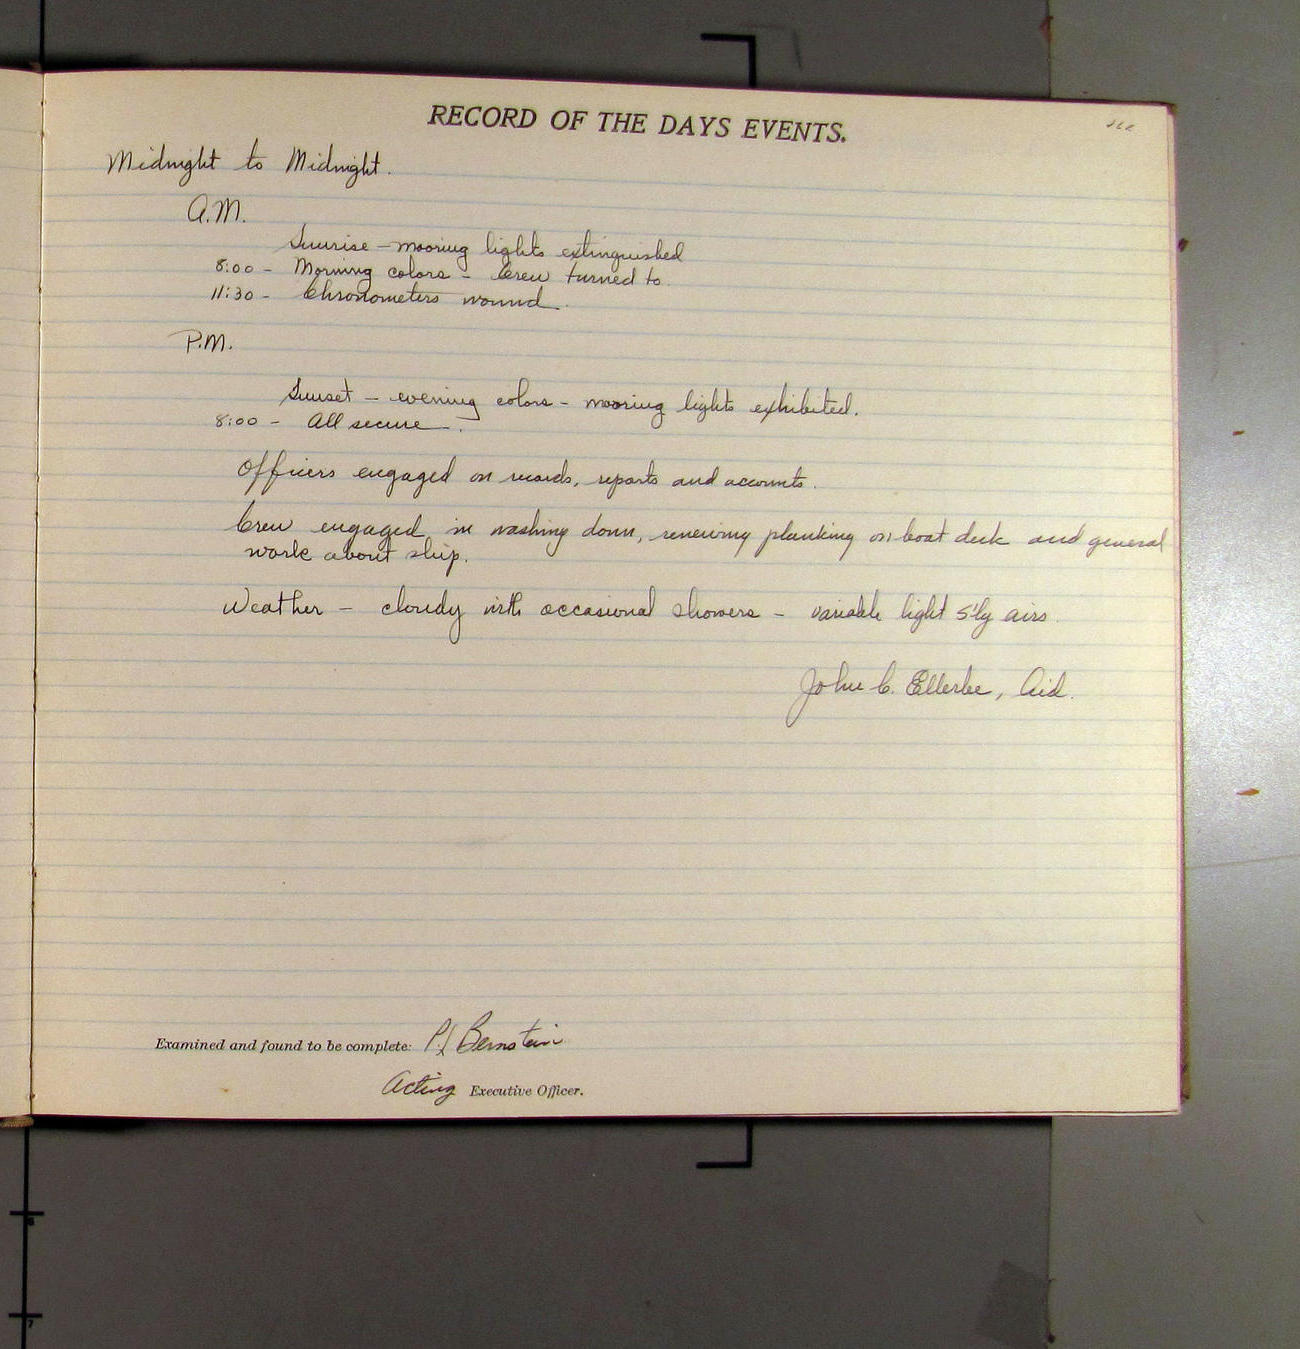 RECORD OF THE DAYS EVENTS.
Midnight to Midnight.
A.M.
Sunrise - mooring lights extinguished
8:00 - Morning colors - Crew turned to.
11:30 - Chronometers wound.
P.M.
Sunset - evening colors - mooring lights exhibited.
8:00 - All secure.
Officers engaged on records, reports and accounts.
Crew engaged in washing down, renewing planking on boat deck and general
work about ship.
Weather - cloudy with occasional showers - variable light S'ly airs.
John C. Ellerbe, Aid.
Examined and found to be complete: Bernstein
Acting Executive Officer.